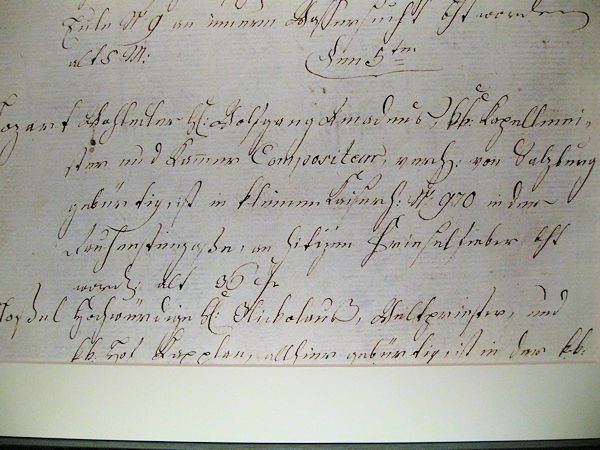 Zuls N 9 an innern Wassersucht bst worden
alt 5 M:
Den 5ten
Mozart Wohledler H: Wolfgang Amadeus, kk: Kapellmei-
ster und Kammer Compositeur, verh: von Salzburg
gebürtig, ist in kleinen Kaiserh: N 970 in der
Rauhensteingasse, an hitzigen Frieselfieber bst
word: alt 36 Jr
Hochwürdige H: Nickolauß, Weltpriester, und
kk: Hof Kapplan, allhier gebürtig, ist in der kk: